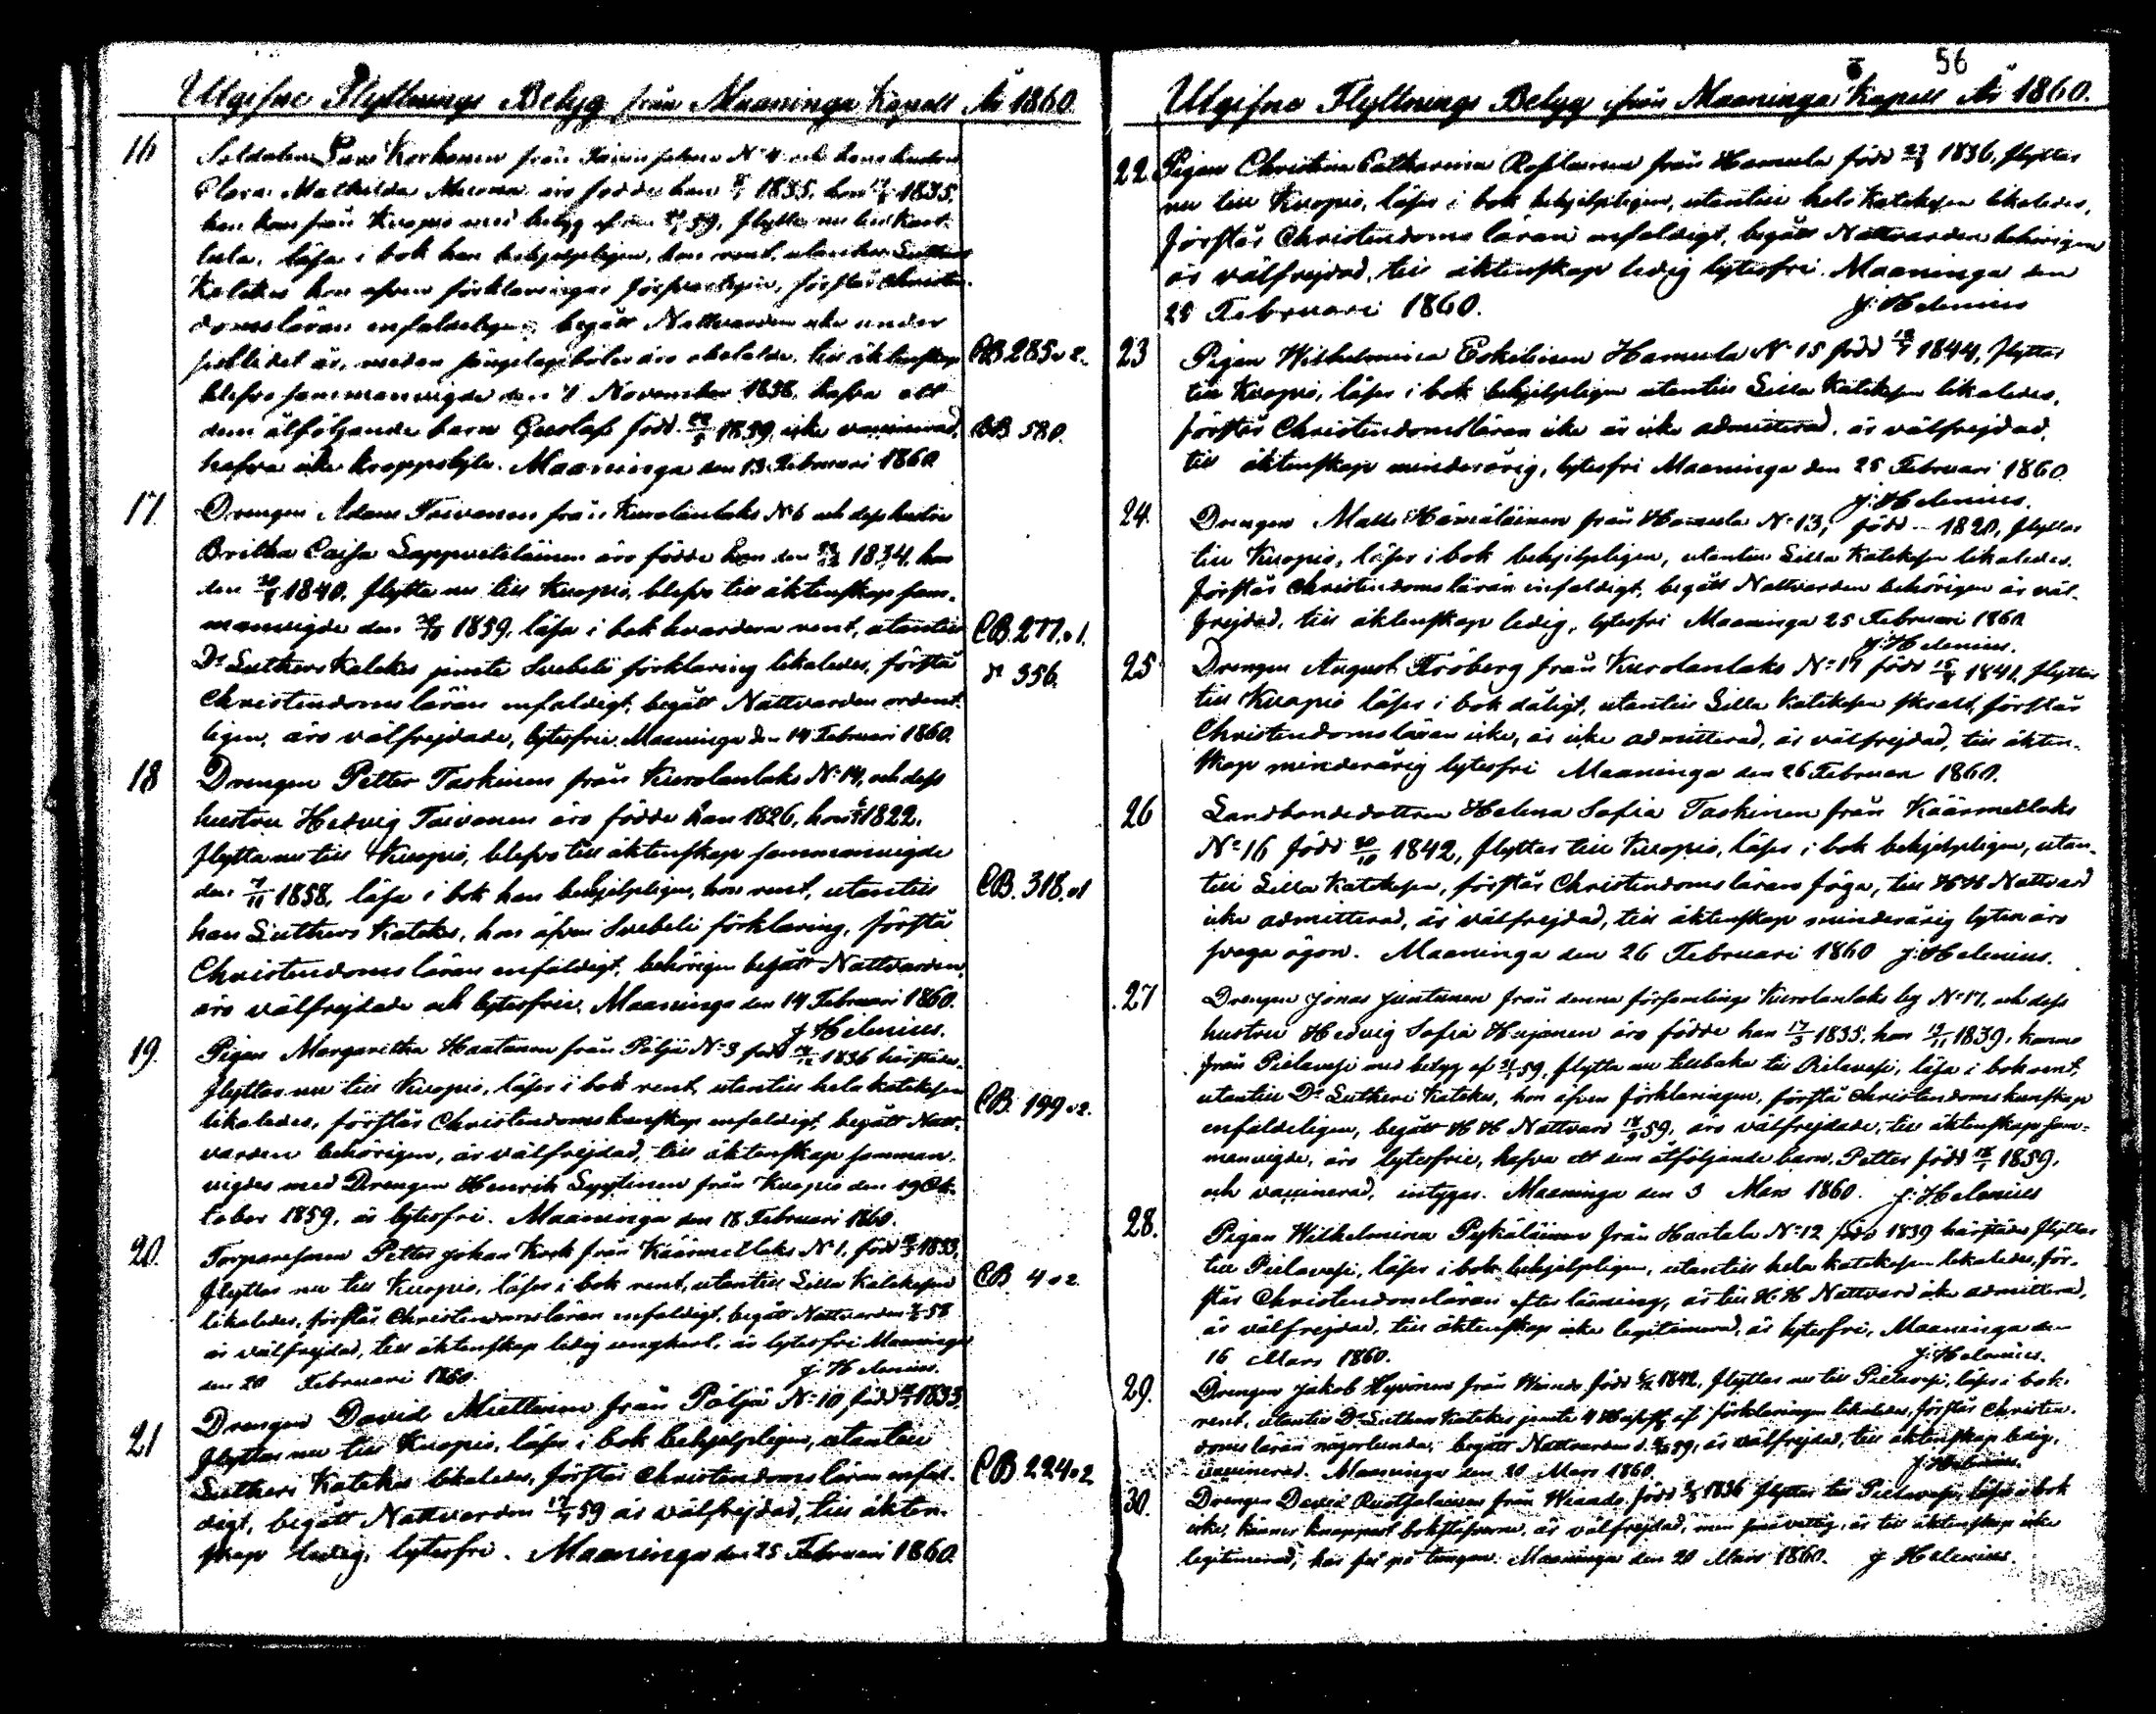 Utgifne Flyttnings Betyg från Maaninga Kapell År 1860.
16 Soldaten Korhonen från N:o 4 och dess hustru
Clara Mathilda äro födde han 1835, hon 1835,
han kom från Kuopio med betyg af den 59, flytta nu till Kart-
tula, läsa i bok han behjelpligen, hon rent, utantill Lutheri
Kateches hon äfven förklaringar försvarligen, förstår Christen-
domsläran enfaldeligen, begått Nattvarden icke under
sistlidet år, medan äro obetalde, till äktenskap CB 285 v 2.
blefvo sammanvigde den 7 November 1858, hafva ett
dem åtföljande barn Gustaf född 1859, icke vaccinerad, BB 580.
hafva icke kroppslyte. Maaninga den 13 Februari 1860
17. Drengen Adam Toivanen från Kurolanlaks N:o 6 och dess hustru
Britha Caisa Lappveteläinen äro födde han den 1834, hon
den 1840, flytta nu till Kuopio, blefvo till äktenskap sam-
manvigde den 1859, läsa i bok hvardera rent, utantill CB. 277. v 1.
Dr Lutheri Kateches jemte Svebelii förklaring likaledes, förstå d:o 356.
Christendomsläran enfaldigt, begått Nattvarden ordent-
ligen, äro välfrejdade, lytesfrie. Maaninga den 14 Februari 1860.
18 Drengen Petter Taskinen från Kurolanlaks N:o 14, och dess
hustru Hedvig Toivanen äro födde han 1826, hon 1822,
flytta nu till Kuopio, blefvo till äktenskap sammanvigde
den 7/11 1858, läsa i bok han behjelpligen, hon rent, utantill CB. 318. v 1
han Lutheri Kateches, hon äfven Svebelii förklaring, förstå
Christendomsläran enfaldigt, behörigen begått Nattvarden,
äro välfrejdade och lytesfrie. Maaninga den 14 Februari 1860.
J. Helenius.
19. Pigan Margaretha Haatanen från Pöljä N:o 3 född 1836 härstädes,
flyttar nu till Kuopio, läser i bok rent, utantill hela katekesen
likaledes, förstår Christendomskunskap enfaldigt, begått Natt- CB. 199 v 2.
varden behörigen, är välfrejdad, till äktenskap samman-
vigdes med Drengen Henrik Lyytinen från Kuopio den 29 Ok-
tober 1859, är lytesfri. Maaninga den 18 Februari 1860.
20. Torparesonen Petter Johan Kock från Käärmetlaks N:o 1, född 1833,
flyttar nu till Kuopio, läser i bok rent, utantill Lilla Katekesen CB 4 v 2.
likaledes, förstår Christendomsläran enfaldigt, begått Nattvarden 58
är välfrejdad, till äktenskap ledig ungkarl, är lytesfri Maaninga
den 20 Februari 1860. J. Helenius.
21 Drengen David Miettinen från Pöljä N:o 10, född 1833,
flyttar nu till Kuopio, läser i bok behjelpligen, utantill
Lutheri Kateches likaledes, förstår Christendomsläran enfal- CB 224 v 2
digt, begått Nattvarden 59 är välfrejdad, till äkten-
skap ledig, lytesfri. Maaninga den 25 Februari 1860.
56
Utgifne Flyttnings Betyg ifrån Maaninga Kapell År 1860.
22 Pigan Christina Catharina från Hamula född 1836, flyttar
nu till Kuopio, läser i bok behjelpligen, utantill hela Katekesen likaledes,
förstår Christendoms läran enfaldigt, begått Nattvarden behörigen
är välfrejdad, till äktenskap ledig lytesfri. Maaninga den
25 Februari 1860. J. Helenius
23 Pigan Wilhelmina Eskelinen Hamula N:o 15 född 1844, flyttar
till Kuopio, läser i bok behjelpligen utantill Lilla Katekesen likaledes,
förstår Christendomsläran icke är icke admitterad, är välfrejdad,
till äktenskap minderårig, lytesfri Maaninga den 25 Februari 1860
J. Helenius.
24. Drengen Matts Hämäläinen från Hamula N:o 13, född 1820, flyttar
till Kuopio, läser i bok behjelpligen, utantill Lilla Katekesen likaledes.
förstår Christendomsläran enfaldigt, begått Nattvarden behörigen är väl-
frejdad, till äktenskap ledig, lytesfri Maaninga 25 Februari 1860
J. Helenius.
25 Drengen August Fröberg från Kurolanlaks N:o 17 född 1841, flyttar
till Kuopio läser i bok dåligt, utantill Lilla Katekesen skralt, förstår
Christendomsläran icke, är icke admitterad, är välfrejdad, till äkten-
skap minderårig lytesfri Maaninga den 26 Februari 1860.
26 Landbondedottren Helena Sofia Taskinen från Käärmetlaks
N:o 16 född 20/10 1842, flyttar till Kuopio, läser i bok behjelpligen, utan-
till Lilla Katekesen, förstår Christendoms läran föga, till H H Nattvard
icke admitterad, är välfrejdad, till äktenskap minderårig lyten äro
svaga ögon. Maaninga den 26 Februari 1860 J. Helenius.
27 Drengen Jonas Juntunen från denna församlings Kurolanlaks by N:o 17, och dess
hustru Hedvig Sofia äro födde han 17/3 1835, hon 1839, komne
från Pielavesi med betyg af 59, flytta nu tillbaka till Pielavesi, läsa i bok rent,
utantill Dr Lutheri Kateches, hon äfven förklaringen, förstå Christendomskunskap
enfaldeligen, begått H H Nattvard 59, äro välfrejdade, till äktenskap sam-
manvigde, äro lytesfrie, hafva ett dem åtföljande barn, Petter född 1859,
och vaccinerad, intygar. Maaninga den 3 Mars 1860. J. Helenius
28. Pigan Wilhelmina Pykäläinen från Haatala N:o 12 född 1839 härstädes flyttar
till Pielavesi, läser i bok behjelpligen, utantill hela katekesen likaledes, för-
står Christendomsläran efter läsning, är till H. H Nattvard icke admitterad,
är välfrejdad, till äktenskap icke legitimerad, är lytesfri, Maaninga den
16 Mars 1860. J. Helenius.
29. Drengen Jakob Hyvönen från Wianda född 1842, flyttar nu till Pielavesi, läser i bok
rent, utantill Dr Lutheri Kateches jemte 4 af förklaringen likaledes, förstår Christen-
doms läran någorlunda, begått Nattvarden d. 59, är välfrejdad, till äktenskap ledig,
vaccinerad. Maaninga den 20 Mars 1860. J. Helenius.
30. Drengen David från Wianda född 1836 flyttar till Pielavesi, läser i bok
icke, känner knappast bokstäfverna, är välfrejdad, men är till äktenskap icke
legitimerad, har fel på tungan. Maaninga den 20 Mars 1860. J. Helenius.